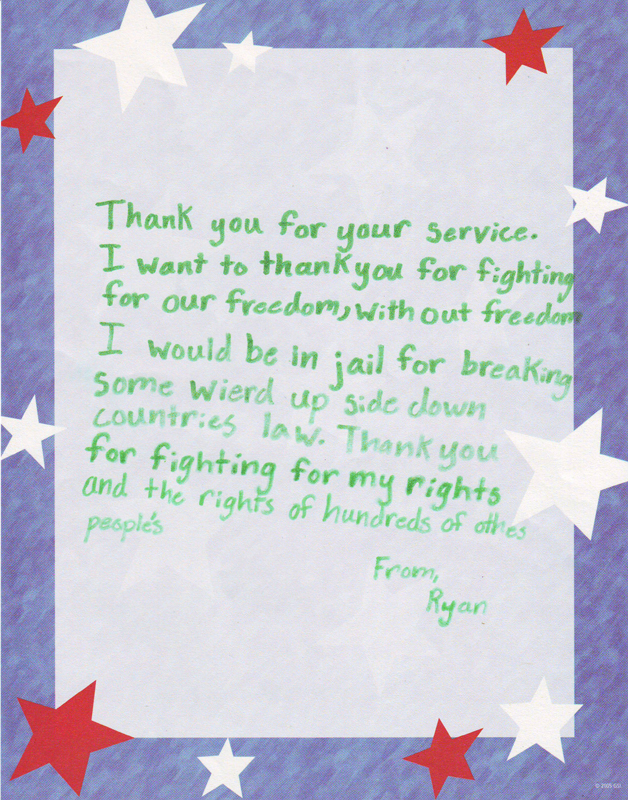 Thank you for your service.
I want to thank you for fighting
for our freedom, with out freedom
I would be in jail for breaking
some wierd up side down
countries law. Thank you
for fighting for my rights
and the rights of hundreds of othes
people's
From,
Ryan